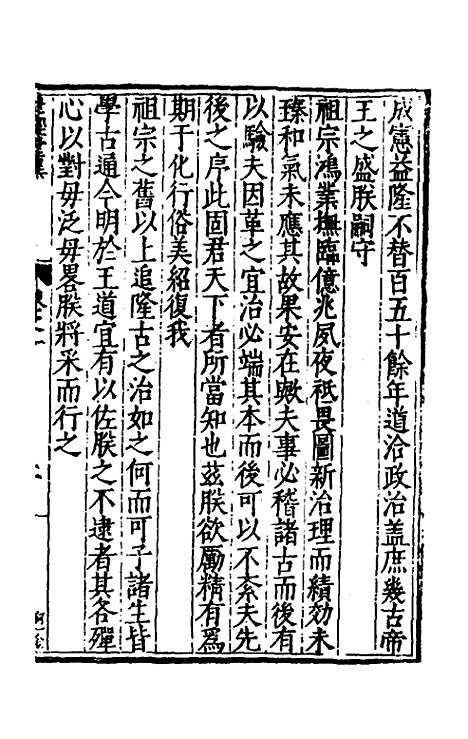 成憲益隆不替百五十餘年道洽政治盖庶幾古帝
王之盛朕嗣守
祖宗鴻業撫臨億兆夙夜祗畏圖新治理而績効未
臻和氣未應其故果安在歟夫事必稽諸古而後有
以驗夫因革之宜治必端其本而後可以不紊夫先
後之序此固君天下者所當知也茲朕欲勵精有爲
期于化行俗美紹復我
祖宗之舊以上追隆古之治如之何而可子諸生皆
學古通今明於王道宜有以佐朕之不逮者其各殫
心以對毋泛毋畧朕將采而行之